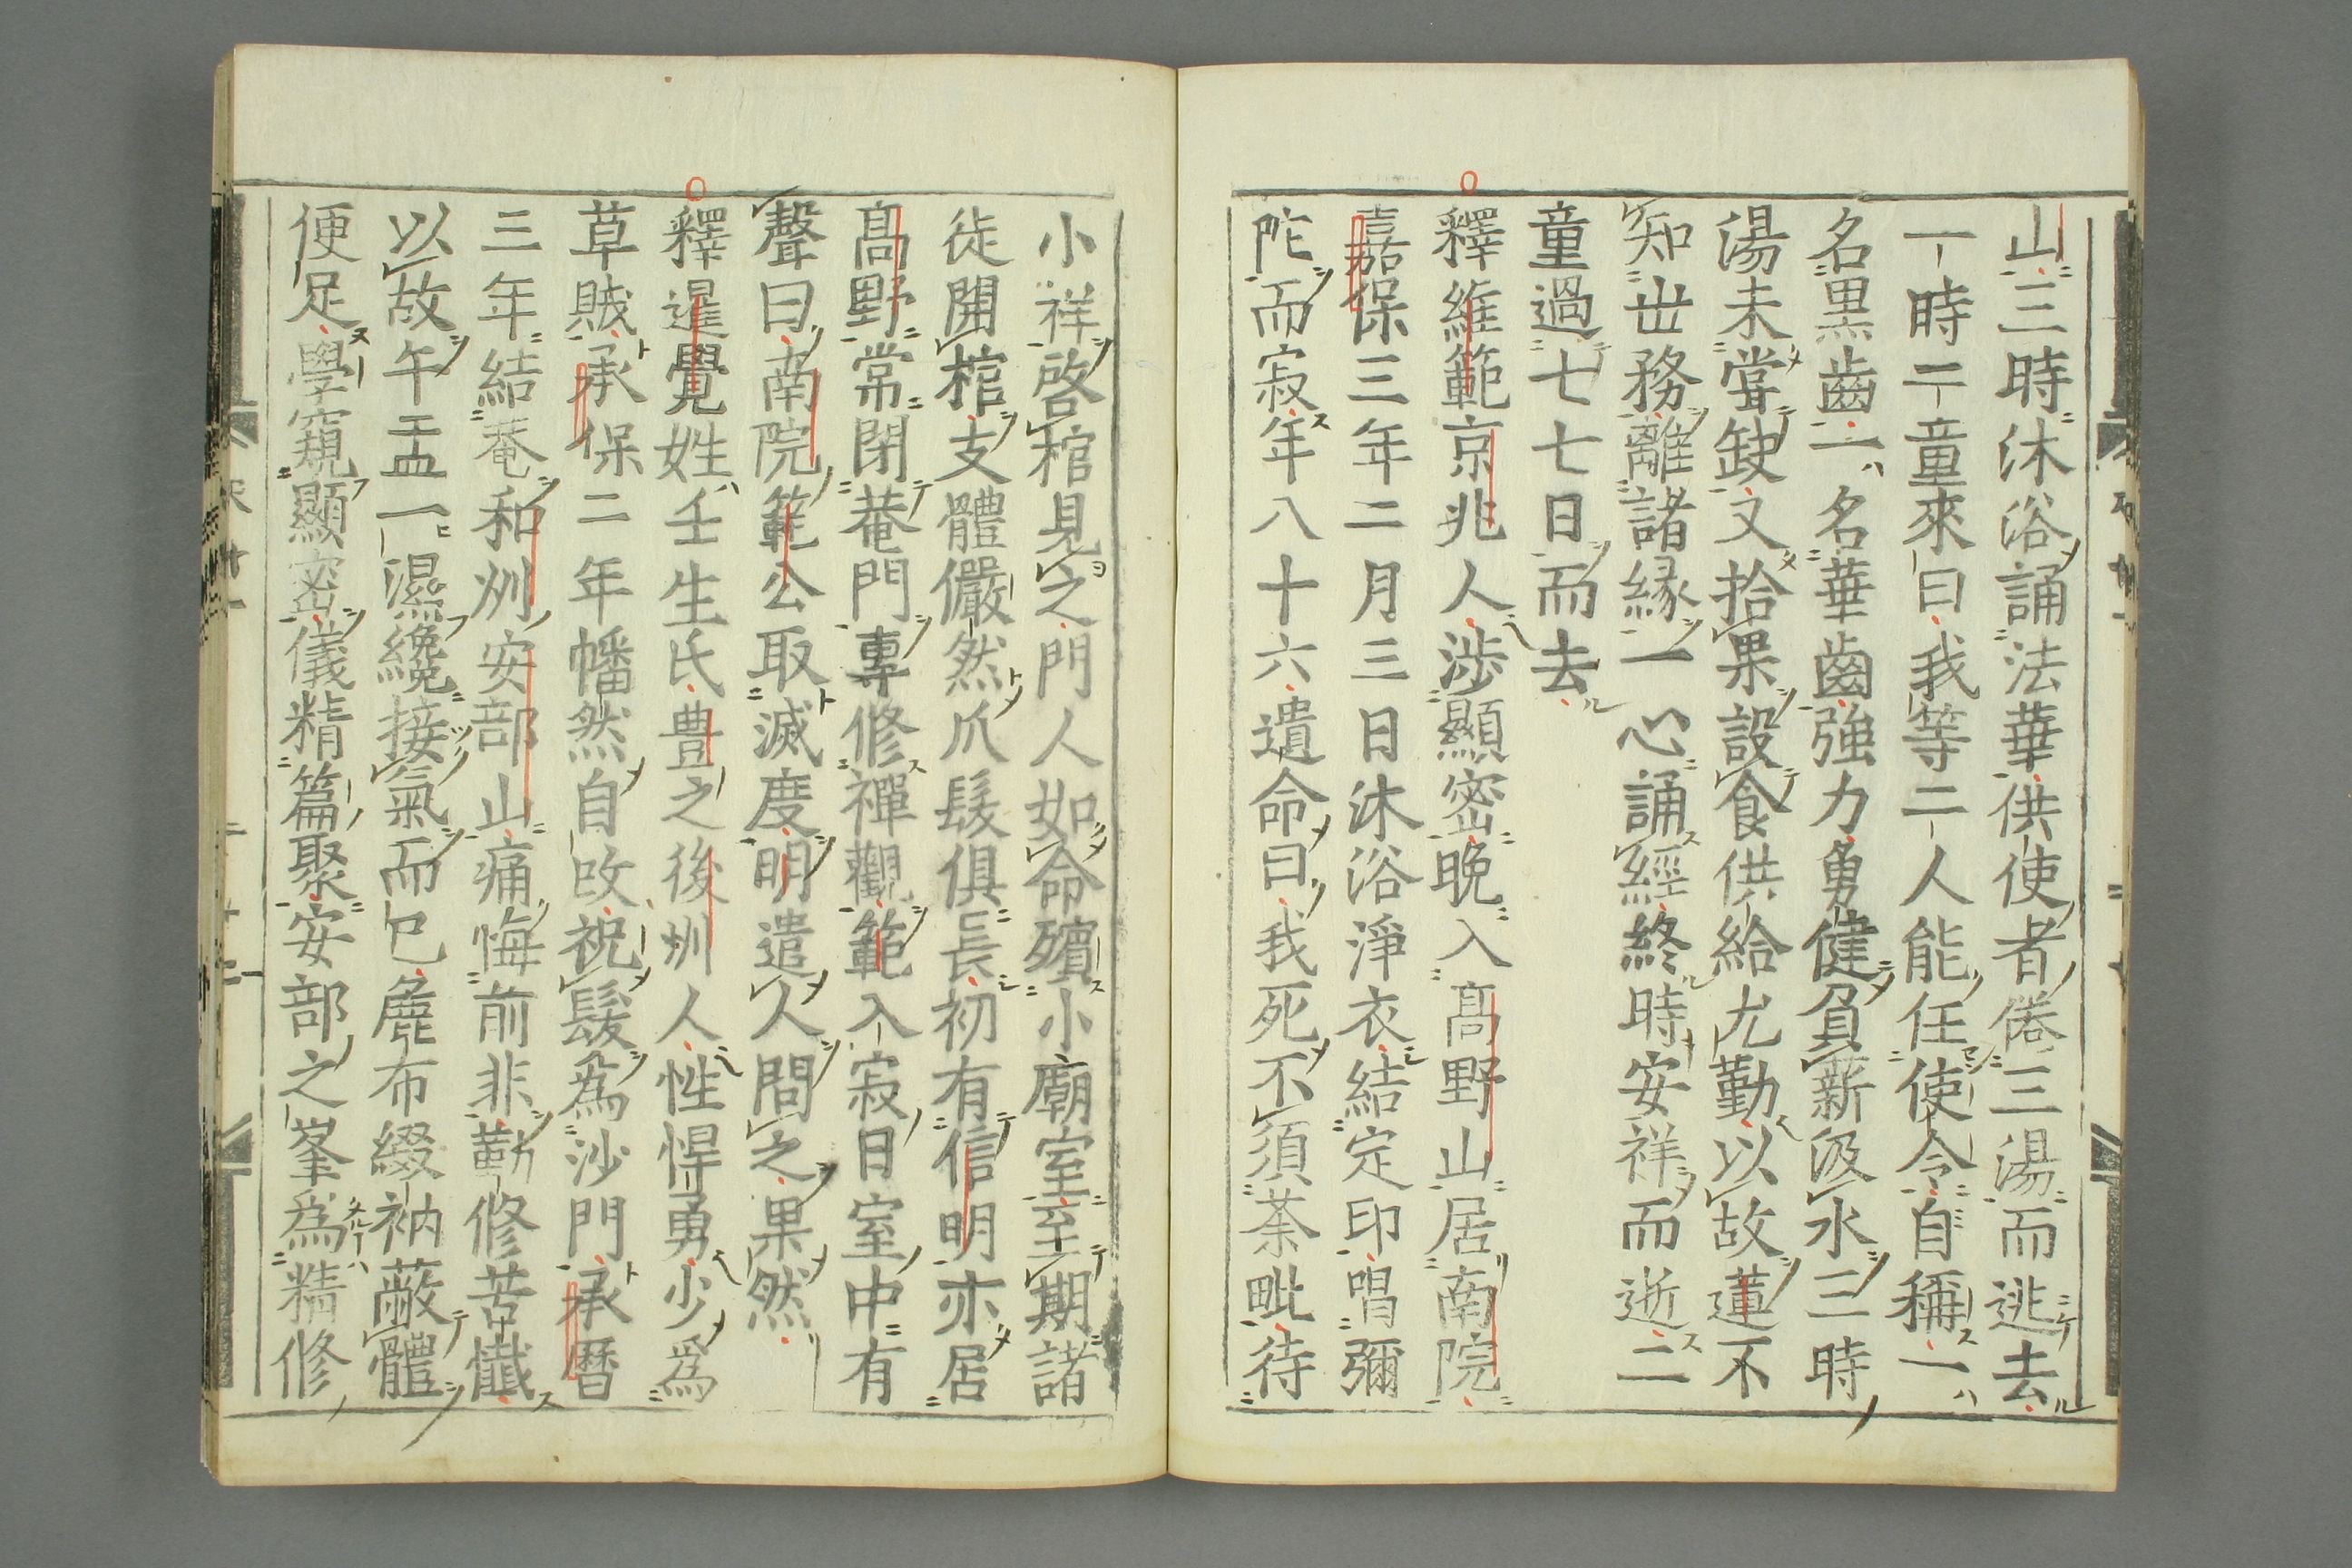 山三時沐浴誦法華供使者倦三湯而逃去
一時二童來曰我等二人能任使令自稱一
名黒齒一名華齒強力勇健負薪汲水三時
湯未甞缺又拾果設食供給尤勤以故蓮不
知世務離諸縁一心誦經終時安祥而逝二
童過七七日而去
釋維範京兆人渉顯密晩入髙野山居南院
嘉保三年二月三日沐浴淨衣結定印唱彌
陀而寂年八十六遺命曰我死不須荼毗待
小祥啓棺見之門人如命殯小廟室至期諸
徒開棺支體儼然爪髮俱長初有信明亦居
髙野常閉菴門專修禪觀範入寂日室中有
聲曰南院範公取滅度明遣人問之果然
釋暹覺姓壬生氏豊之後州人性悍勇少爲
草賊承保二年幡然自改祝髮爲沙門承暦
三年結菴和州安部山痛悔前非勤修苦懺
以故午盂一濕纔接氣而已麁布綴衲蔽體
便足學窺顯密儀精篇聚安部之峯爲精修